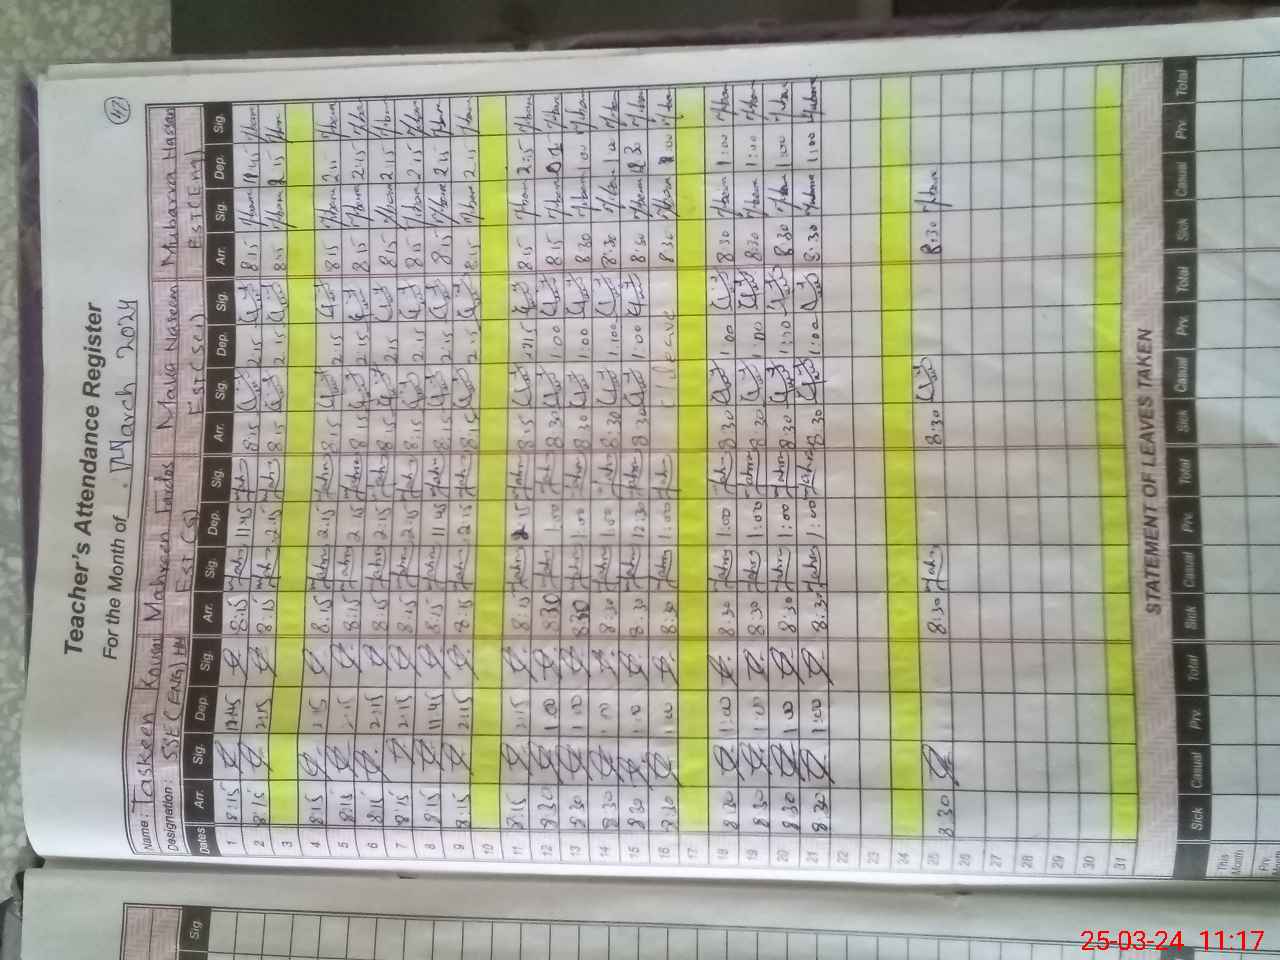 42
Teacher's Attendance Register
For the Month of March 2024
Name: Taskeen Mahreen Maha Naseem Mubarra Hassan
Designation: SSE(ENG) HM EST EST(Sci) EST(Eng)
Dates Arr. Sig. Dep. Sig. Arr. Sig. Dep. Sig. Arr. Sig. Dep. Sig. Arr. Sig. Dep. Sig.
1 8:15 8:15 11:45 8:15 2:15 8:15
2 8:15 2:15 8:15 2:15 8:15 2:15 8:15 2:15
3
4 8:15 2:15 8:15 2:15 8:15 2:15 8:15 2:15
5 8:15 2:15 8:15 2:15 8:15 2:15 8:15 2:15
6 8:15 2:15 8:15 2:15 8:15 2:15 8:15 2:15
7 8:15 2:15 8:15 2:15 8:15 2:15 8:15 2:15
8 8:15 11:45 8:15 11:45 8:15 2:15 8:15 2:15
9 8:15 2:15 8:15 2:15 8:15 2:15 8:15 2:15
10
11 8:15 2:15 8:15 2:15 8:15 2:15 8:15 2:15
12 8:30 1:00 8:30 1:00 8:30 1:00 8:15
13 8:30 1:00 8:30 1:00 8:30 1:00 8:30 1:00
14 8:30 1:00 8:30 1:00 8:30 1:00 8:30 1:00
15 8:30 1:00 8:30 12:30 8:30 1:00 8:30 12:30
16 8:30 1:00 8:30 1:00 Leave 8:30 1:00
17
18 8:30 1:00 8:30 1:00 8:30 1:00 8:30 1:00
19 8:30 1:00 8:30 1:00 8:30 1:00 8:30 1:00
20 8:30 1:00 8:30 1:00 8:30 1:00 8:30 1:00
21 8:30 1:00 8:30 1:00 8:30 1:00 8:30 1:00
22
23
24
25 8:30 8:30 8:30 8:30
26
27
28
29
30
31
STATEMENT OF LEAVES TAKEN
Sick Casual Prv. Total Sick Casual Prv. Total Sick Casual Prv. Total Sick Casual Prv. Total
This Month
Prv.
Sig.
25-03-24 11:17